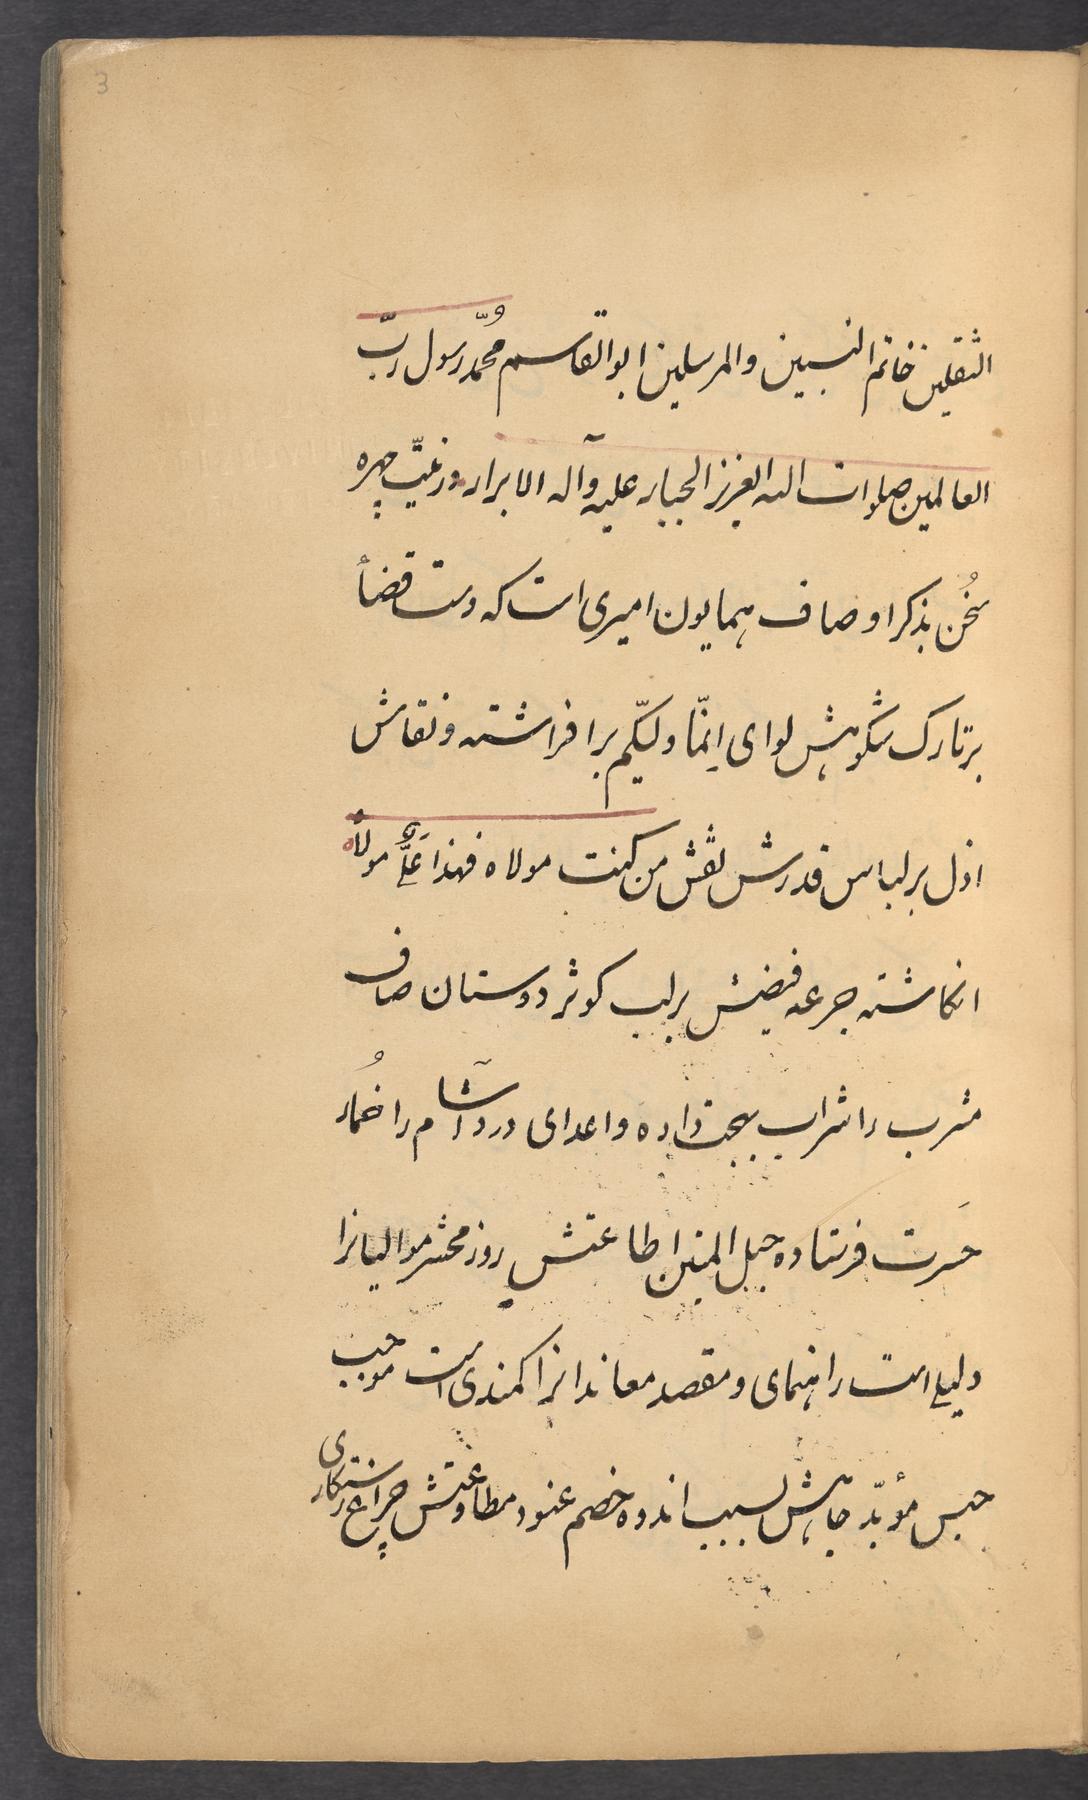 3
الثقلین خاتم النبیین والمرسلین ابوالقاسم مُحمّد رسول ربّ
العالمین صلوات الله العزیز الجبار علیه وآله الابرار وزینت چهره
سخُن بذکر اوصاف همایون امیری است که دست قضأ
بر تارک شکوهش لوای اِنمّا ولیّکم برافراشته و نقاش
ازل بر لباس قدرش نقش من کنت مولاه فهذا عَلیٌّ مولاه
انکاشته جرعه فیضش بر لب کوثر دوستان صاف
مشرب را شراب بهجت داده و اعدای درد آشام را خُمار
حَسرت فرستاده حبل المتین اطاعتش روز محشر موالیانرا
دلیلی است راهنمای و مقصد معاندانرا کمندی است موجب
حبس مؤبّد جاهش بسبب اندوه خصم عنود مطاوعتش چراغ رستکاری